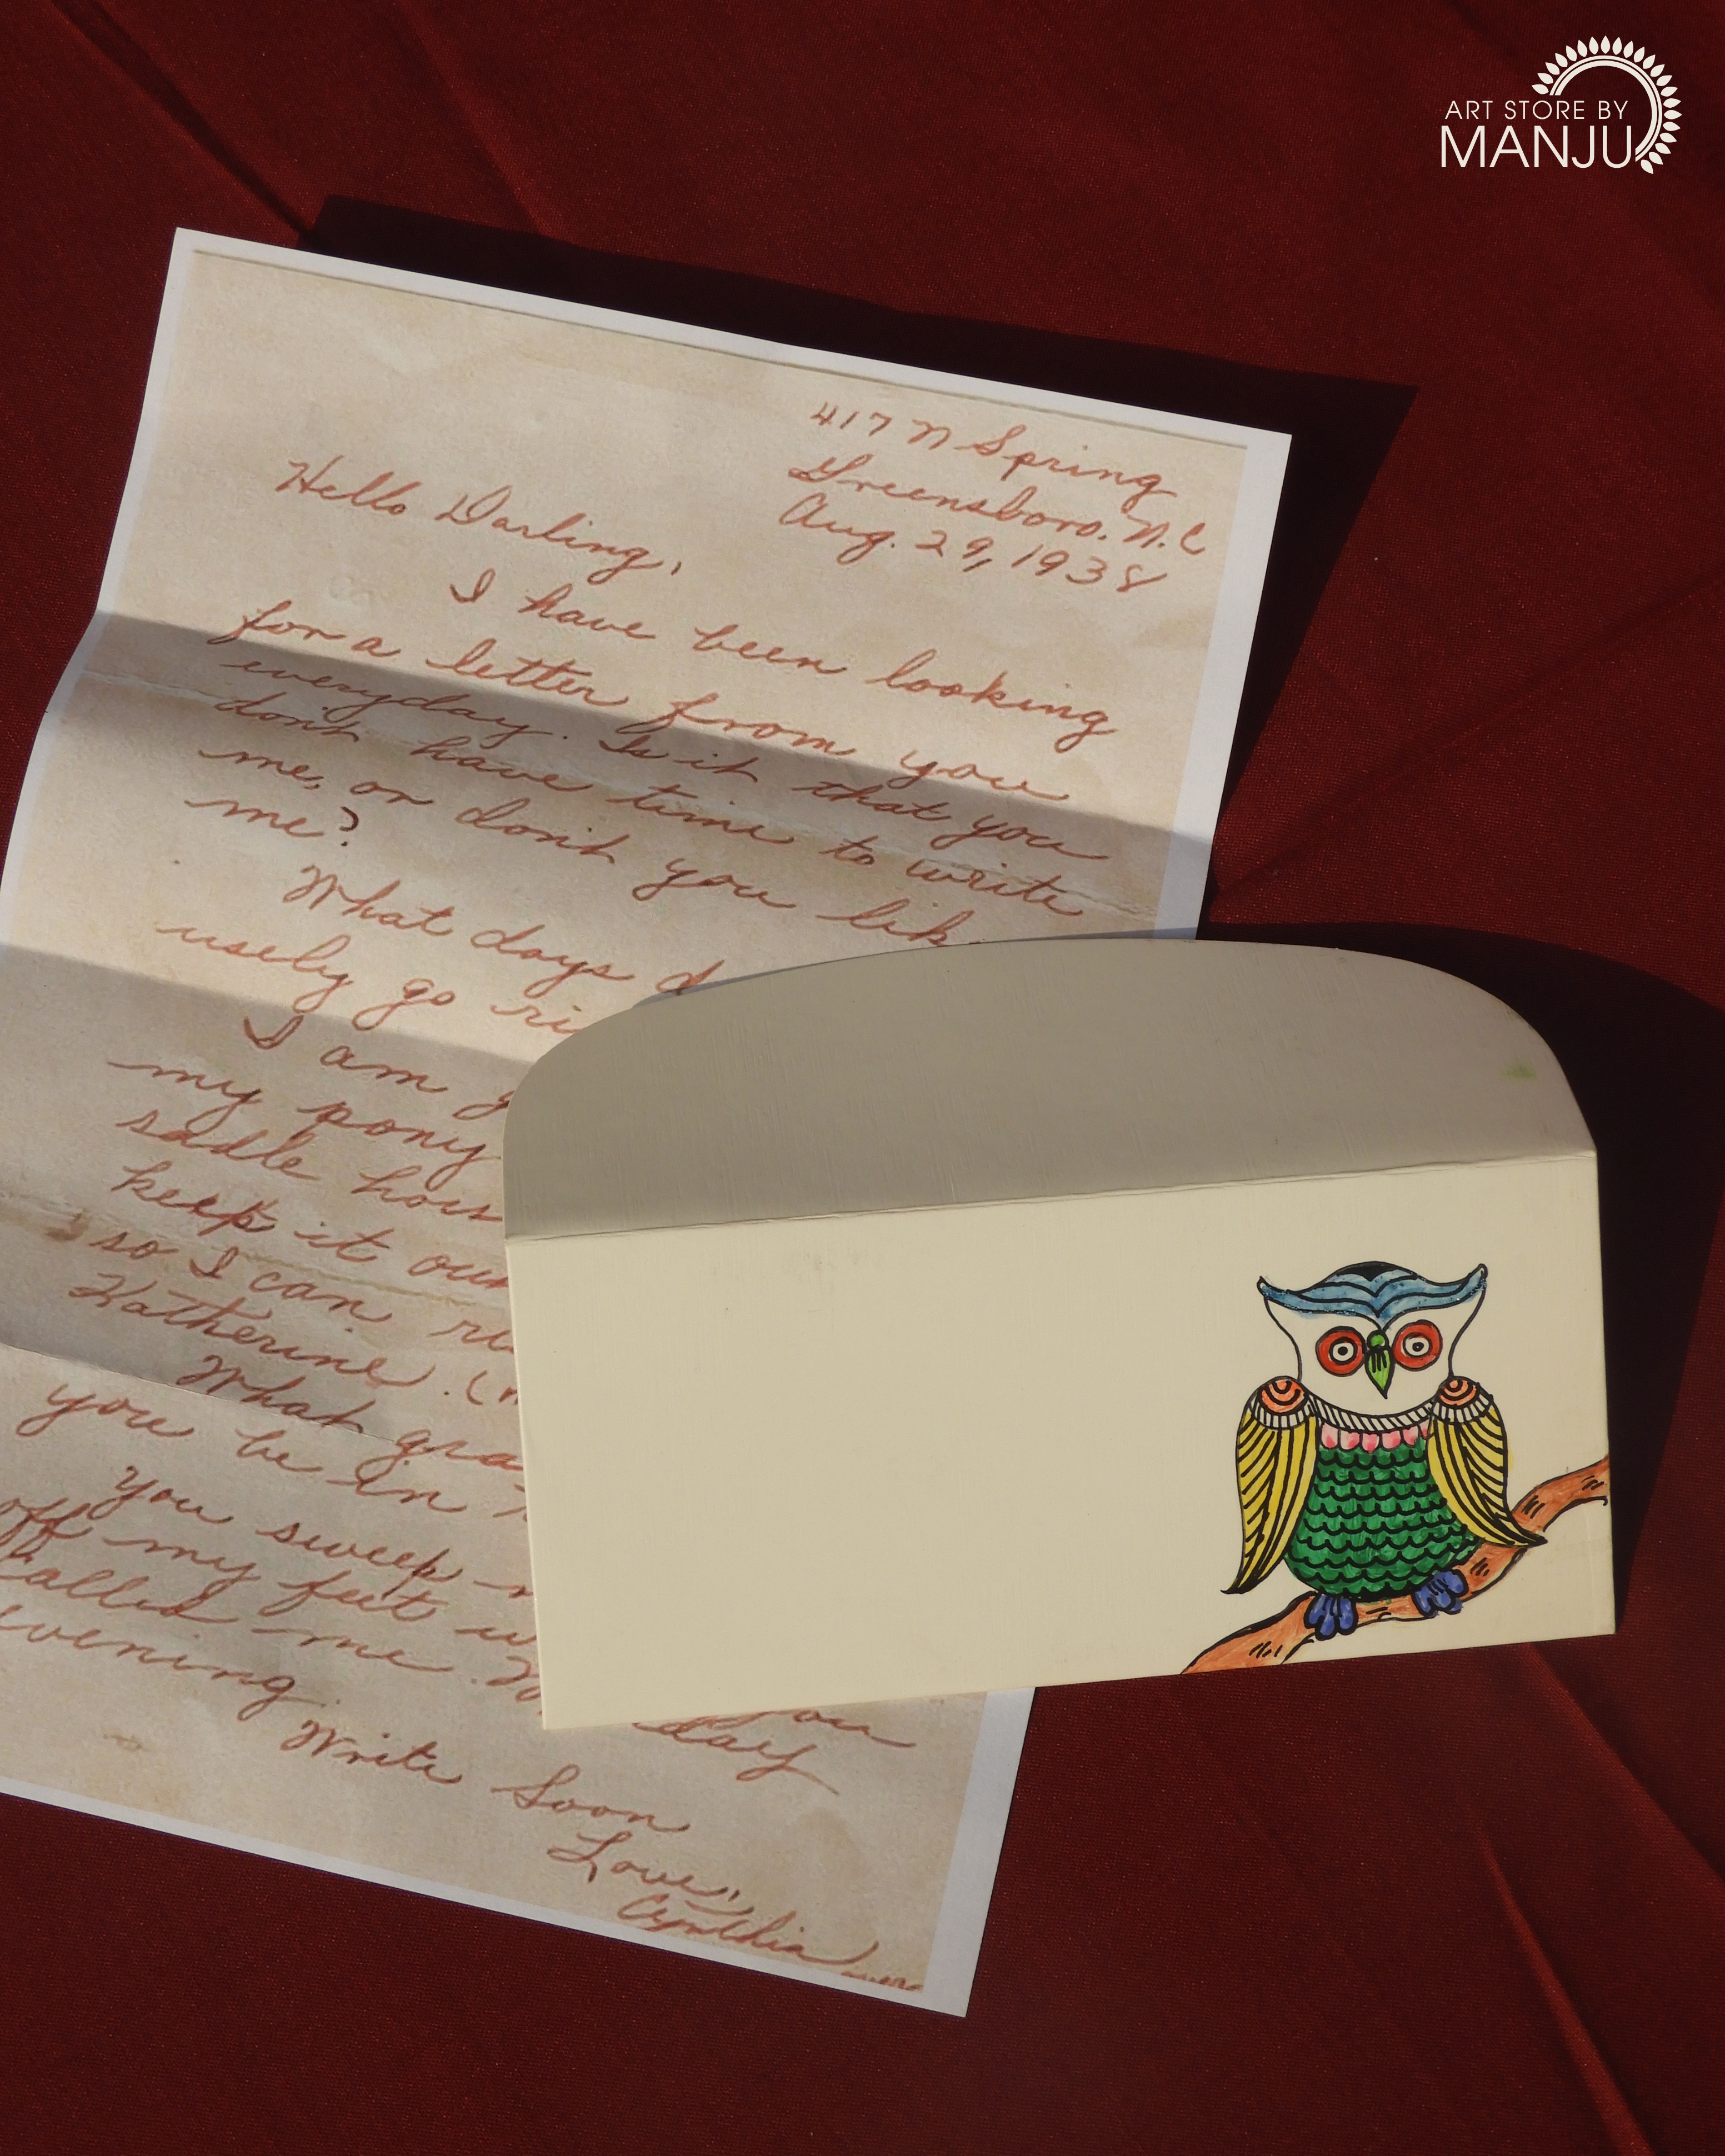 ART STORE BY
MANJU
417 N Spring
Greensboro. N.C
Aug. 29, 1938
Hello Darling,
I have been looking
for a letter from you
everyday. Is it that you
don't have time to write
me, or don't you lik
me?
What days d
usely go ri
I am g
my pony
sadle hors
keep it our
so I can ri
Katherine. (
What gra
you be in
You sweep
off my feet w
called me. you
evening. day
Write Soon
Love,
Cynthia
over